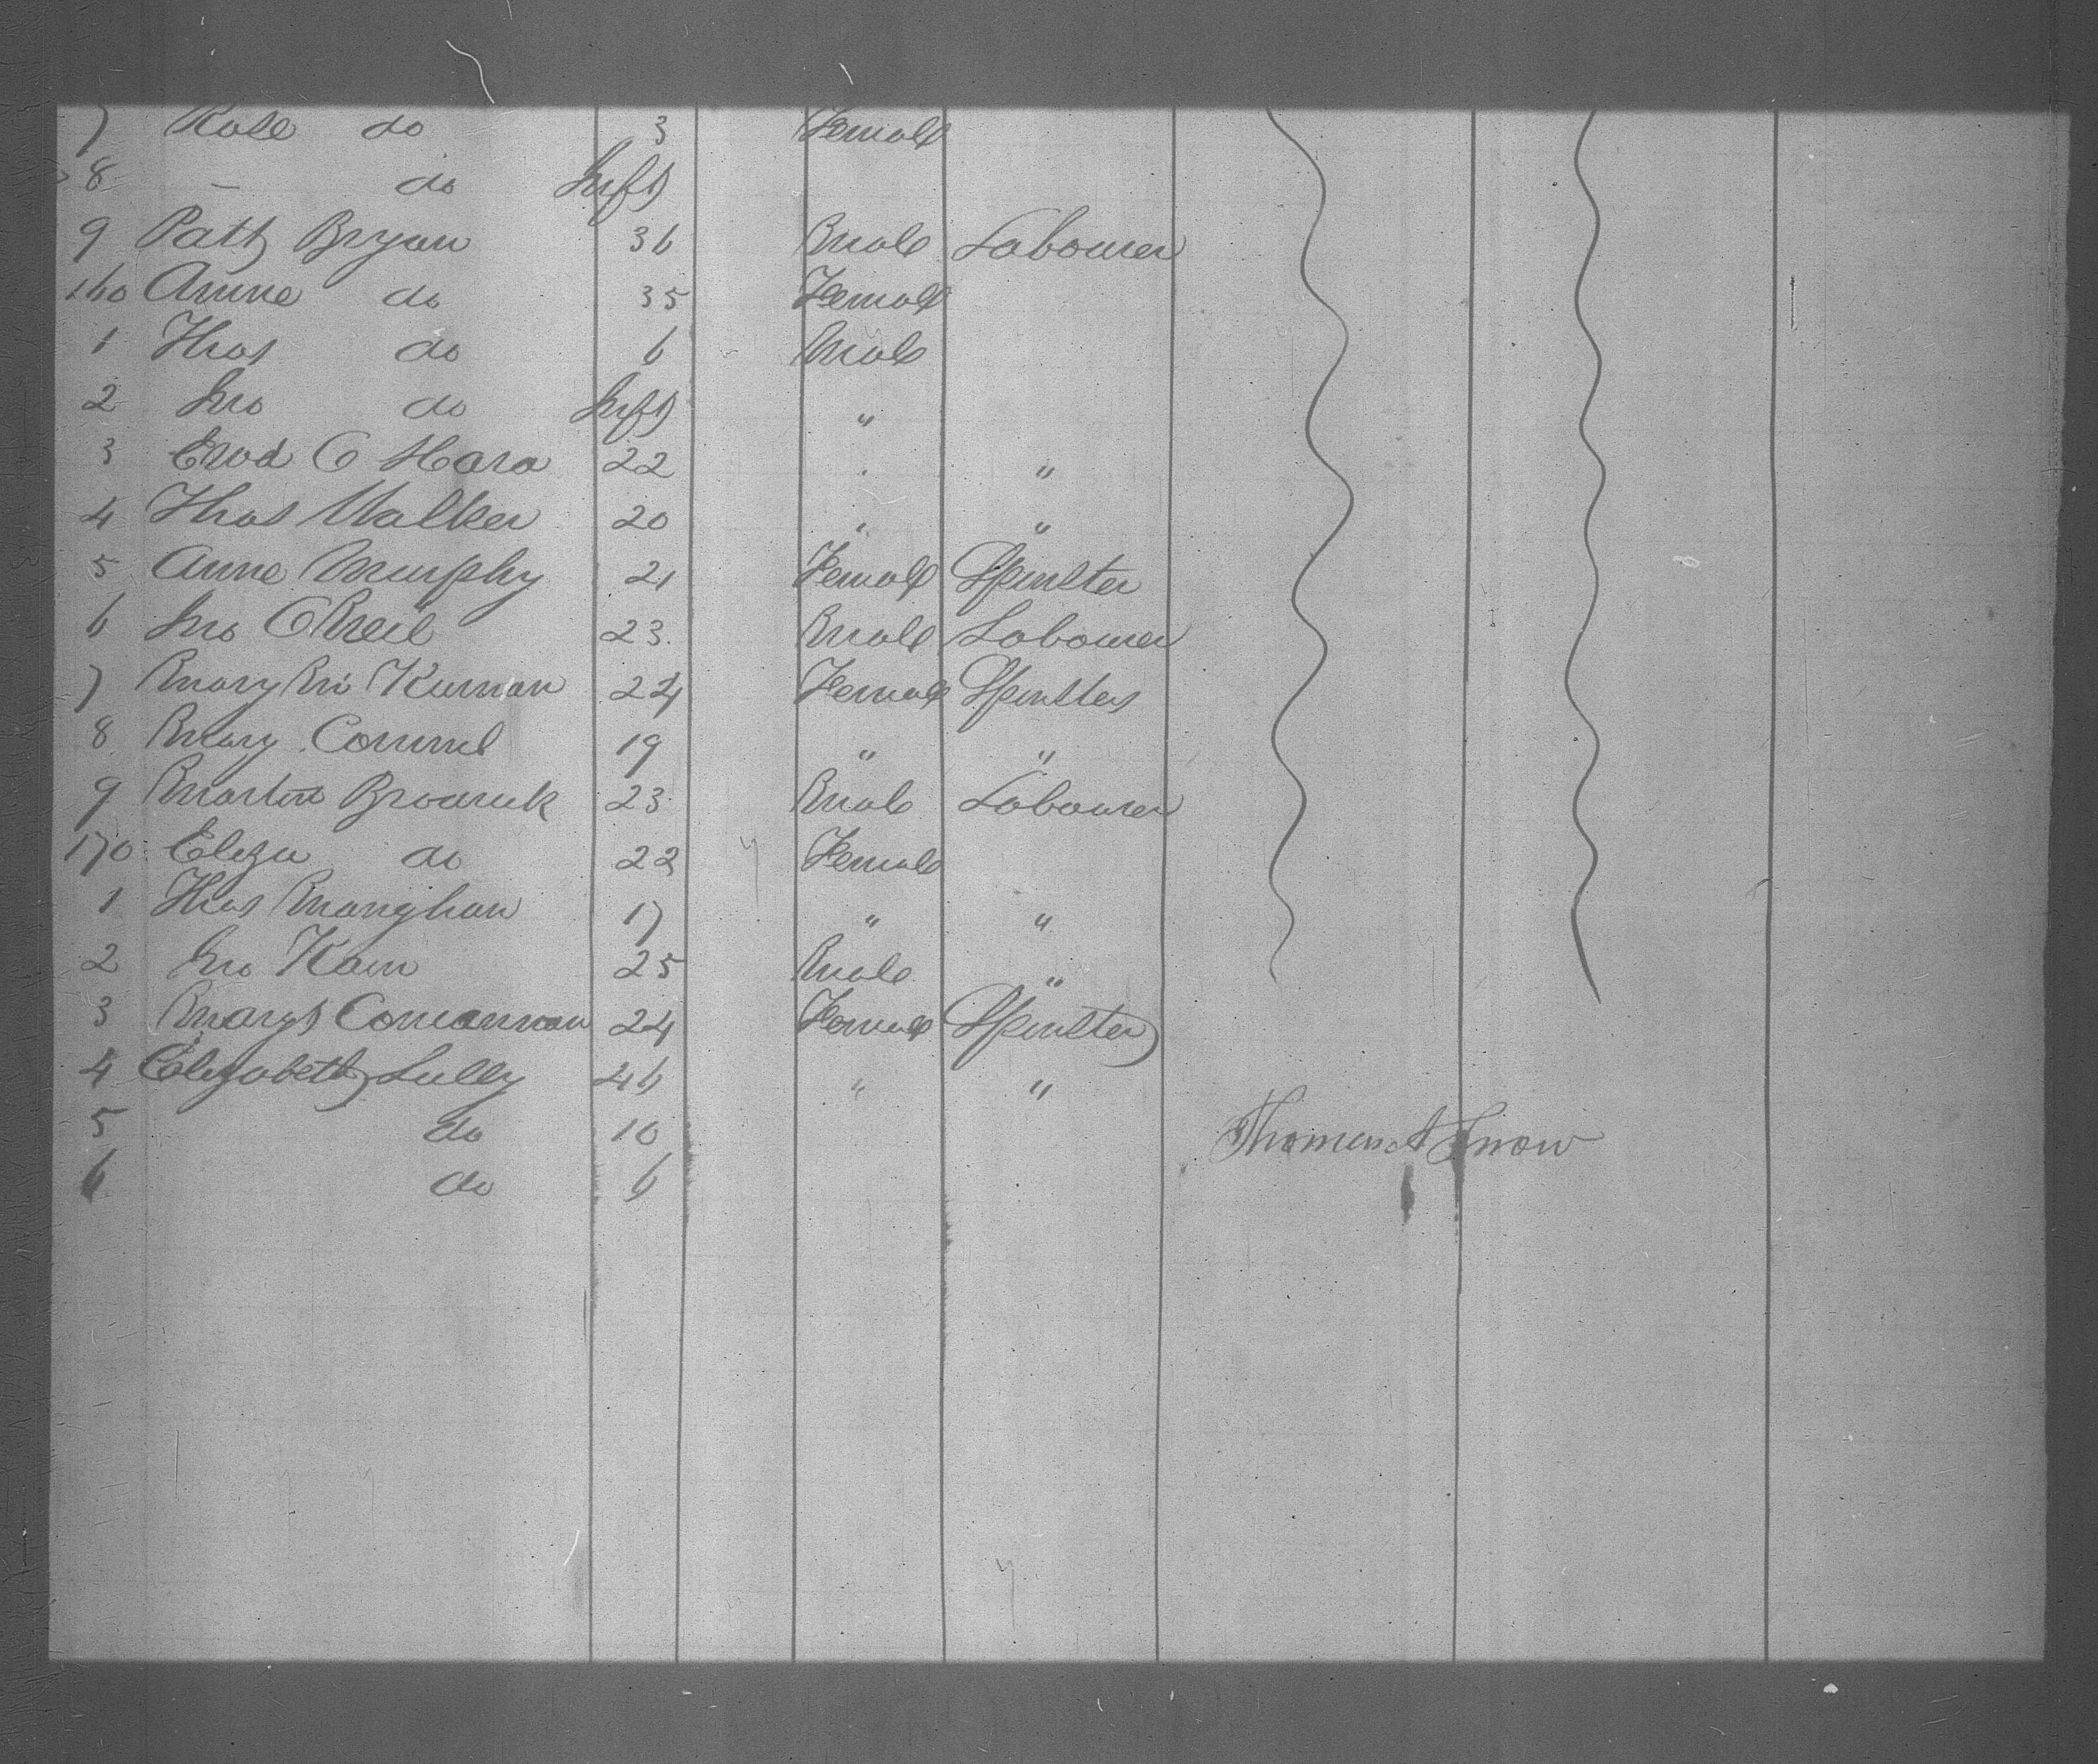 7 Rose do 3 Female
8 - do Inft
9 Patk Bryan 36 Male Labourer
160 Anne do 35 Female
1 Thos do 6 Male
2 Jno do Inft "
3 Edwd O Hara 22 " "
4 Thos Walker 20 " "
5 Anne Murphy 21 Female Spinster
6 Jno O Neil 23 Male Labourer
7 Mary Mc Kiernan 24 Female Spinster
8 Mary Connel 19 " "
9 Martin Broderick 23 Male Labourer
170 Eliza do 22 Female
1 Thos Manghan 17 " "
2 Jno Kain 25 Male "
3 Margt 24 Female Spinster
4 Elizabeth Lully 46 " "
5 do 10
Thomas A Snow
6 do 6